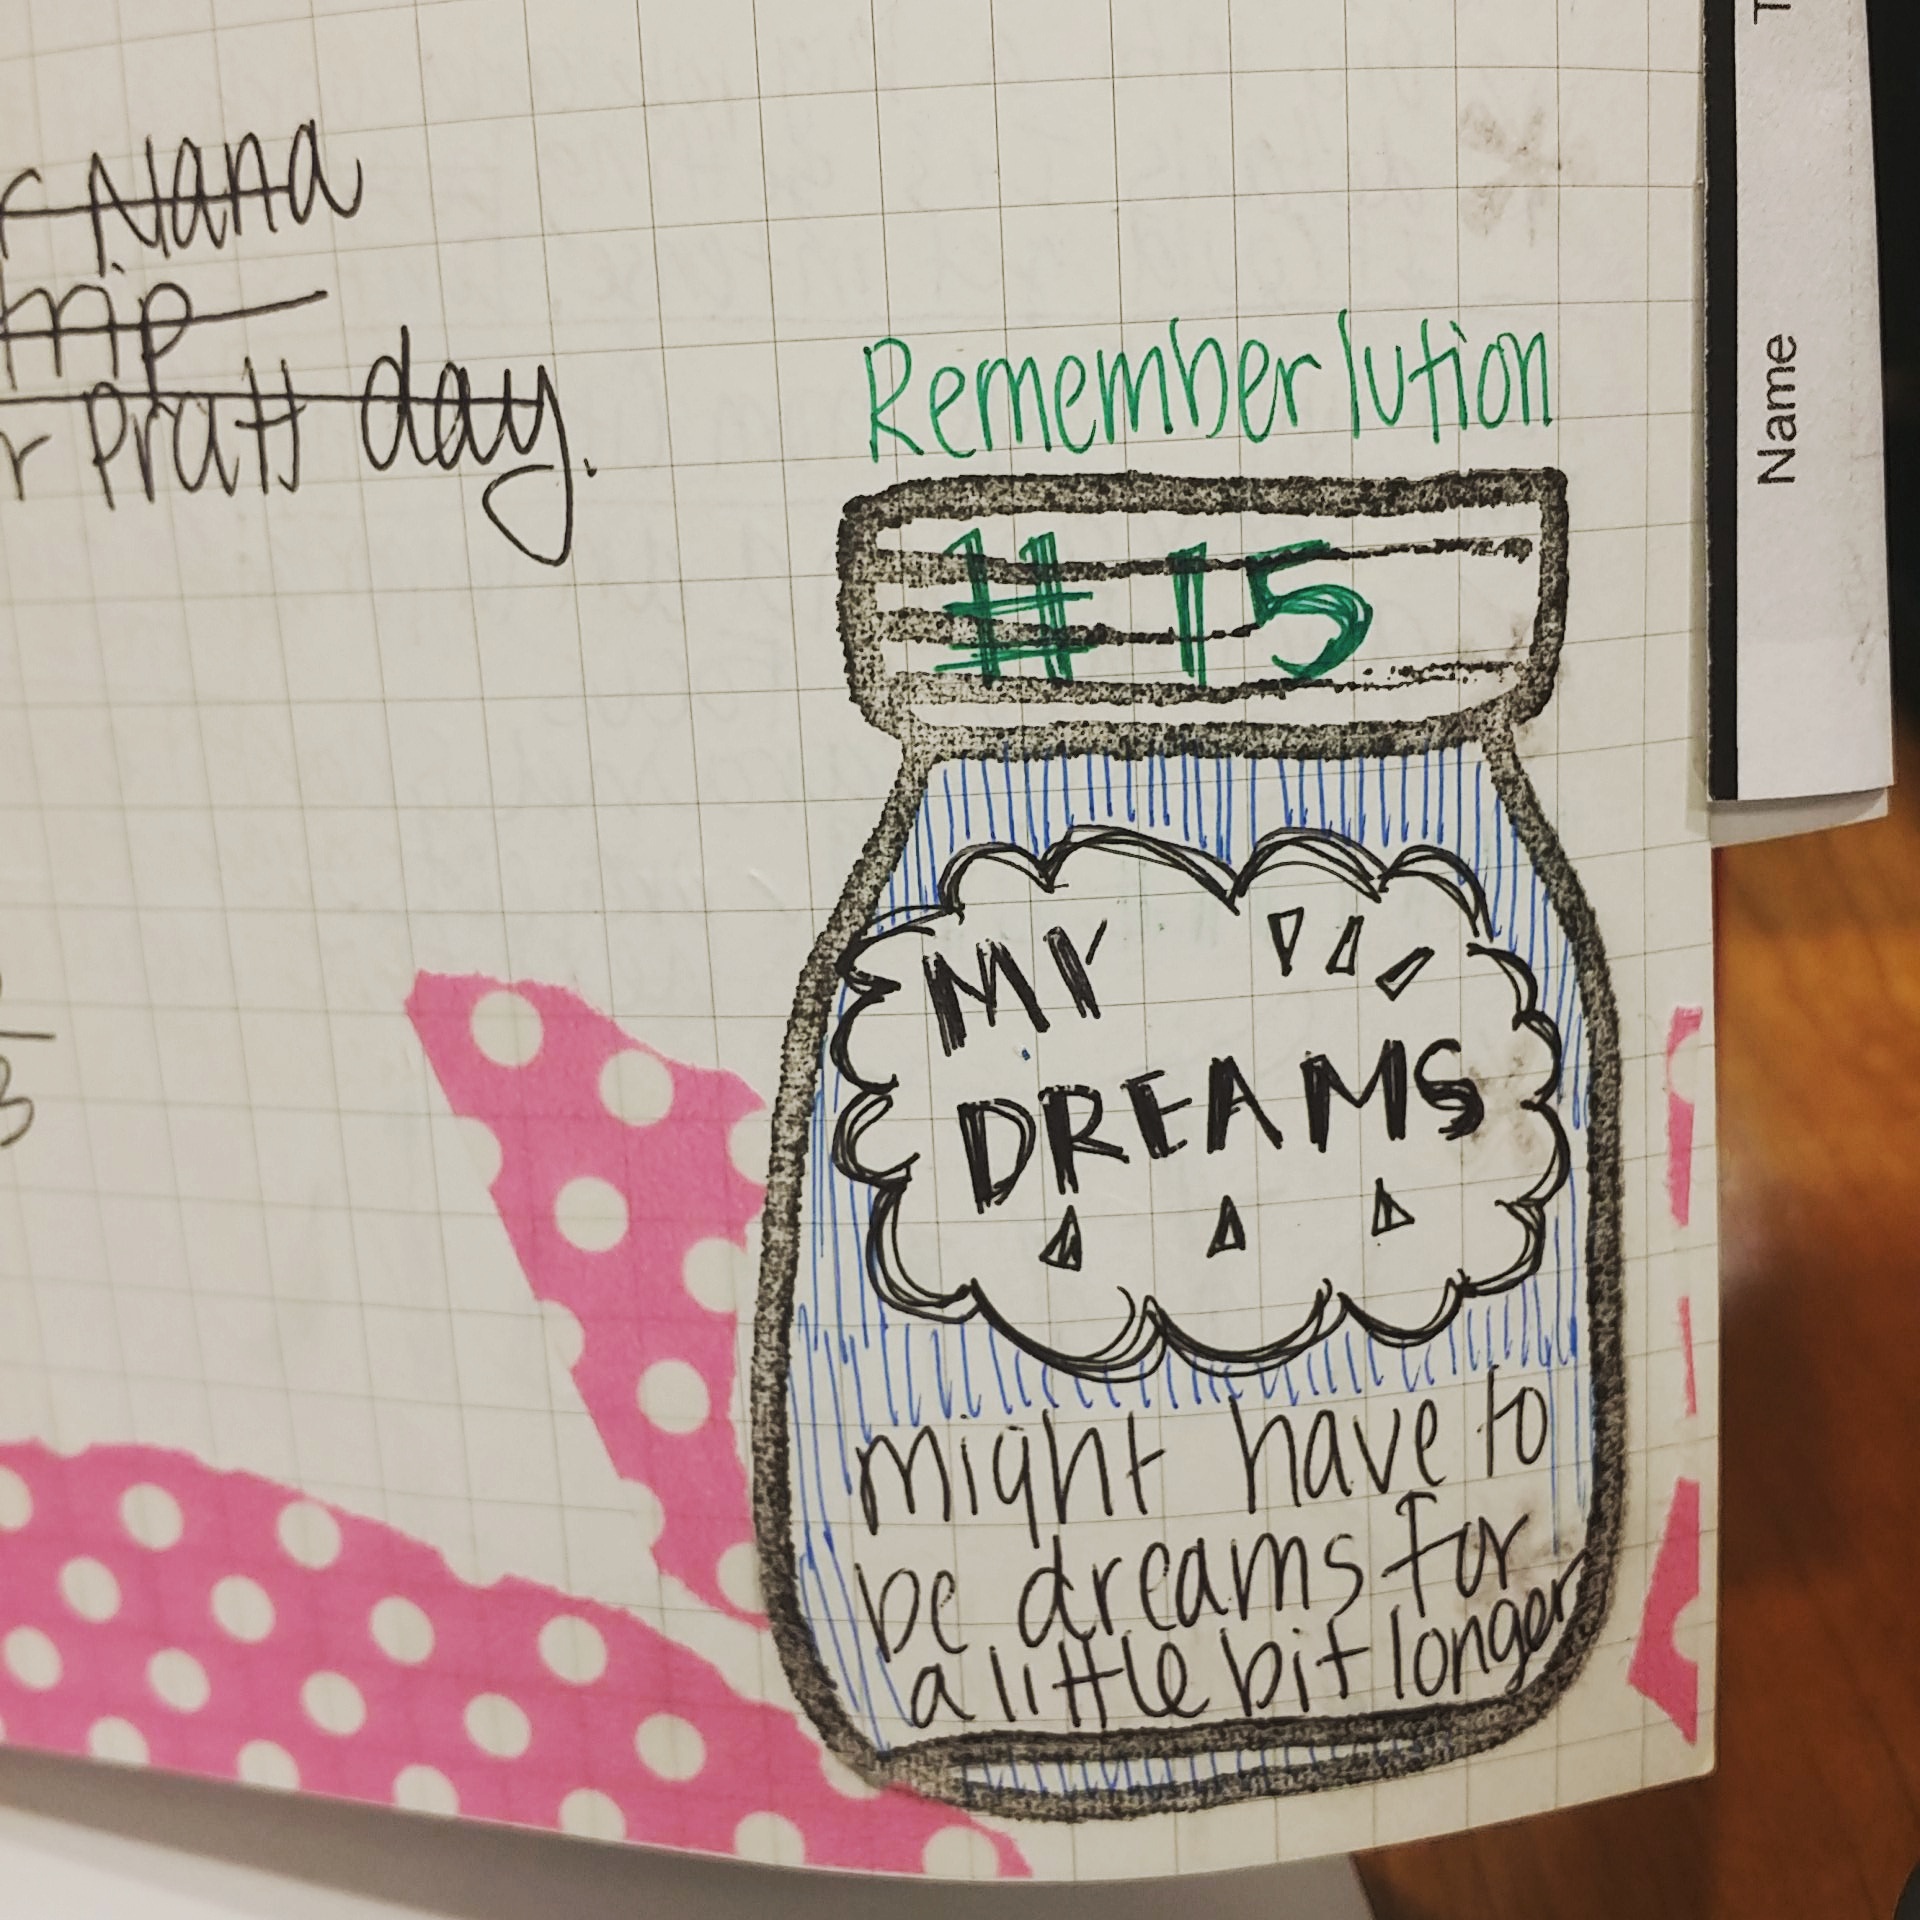 Nana
trip
Pratt day.
Rememberlution
#15
MY
DREAMS
might have to
be dreams for
a little bit longer
3
Name